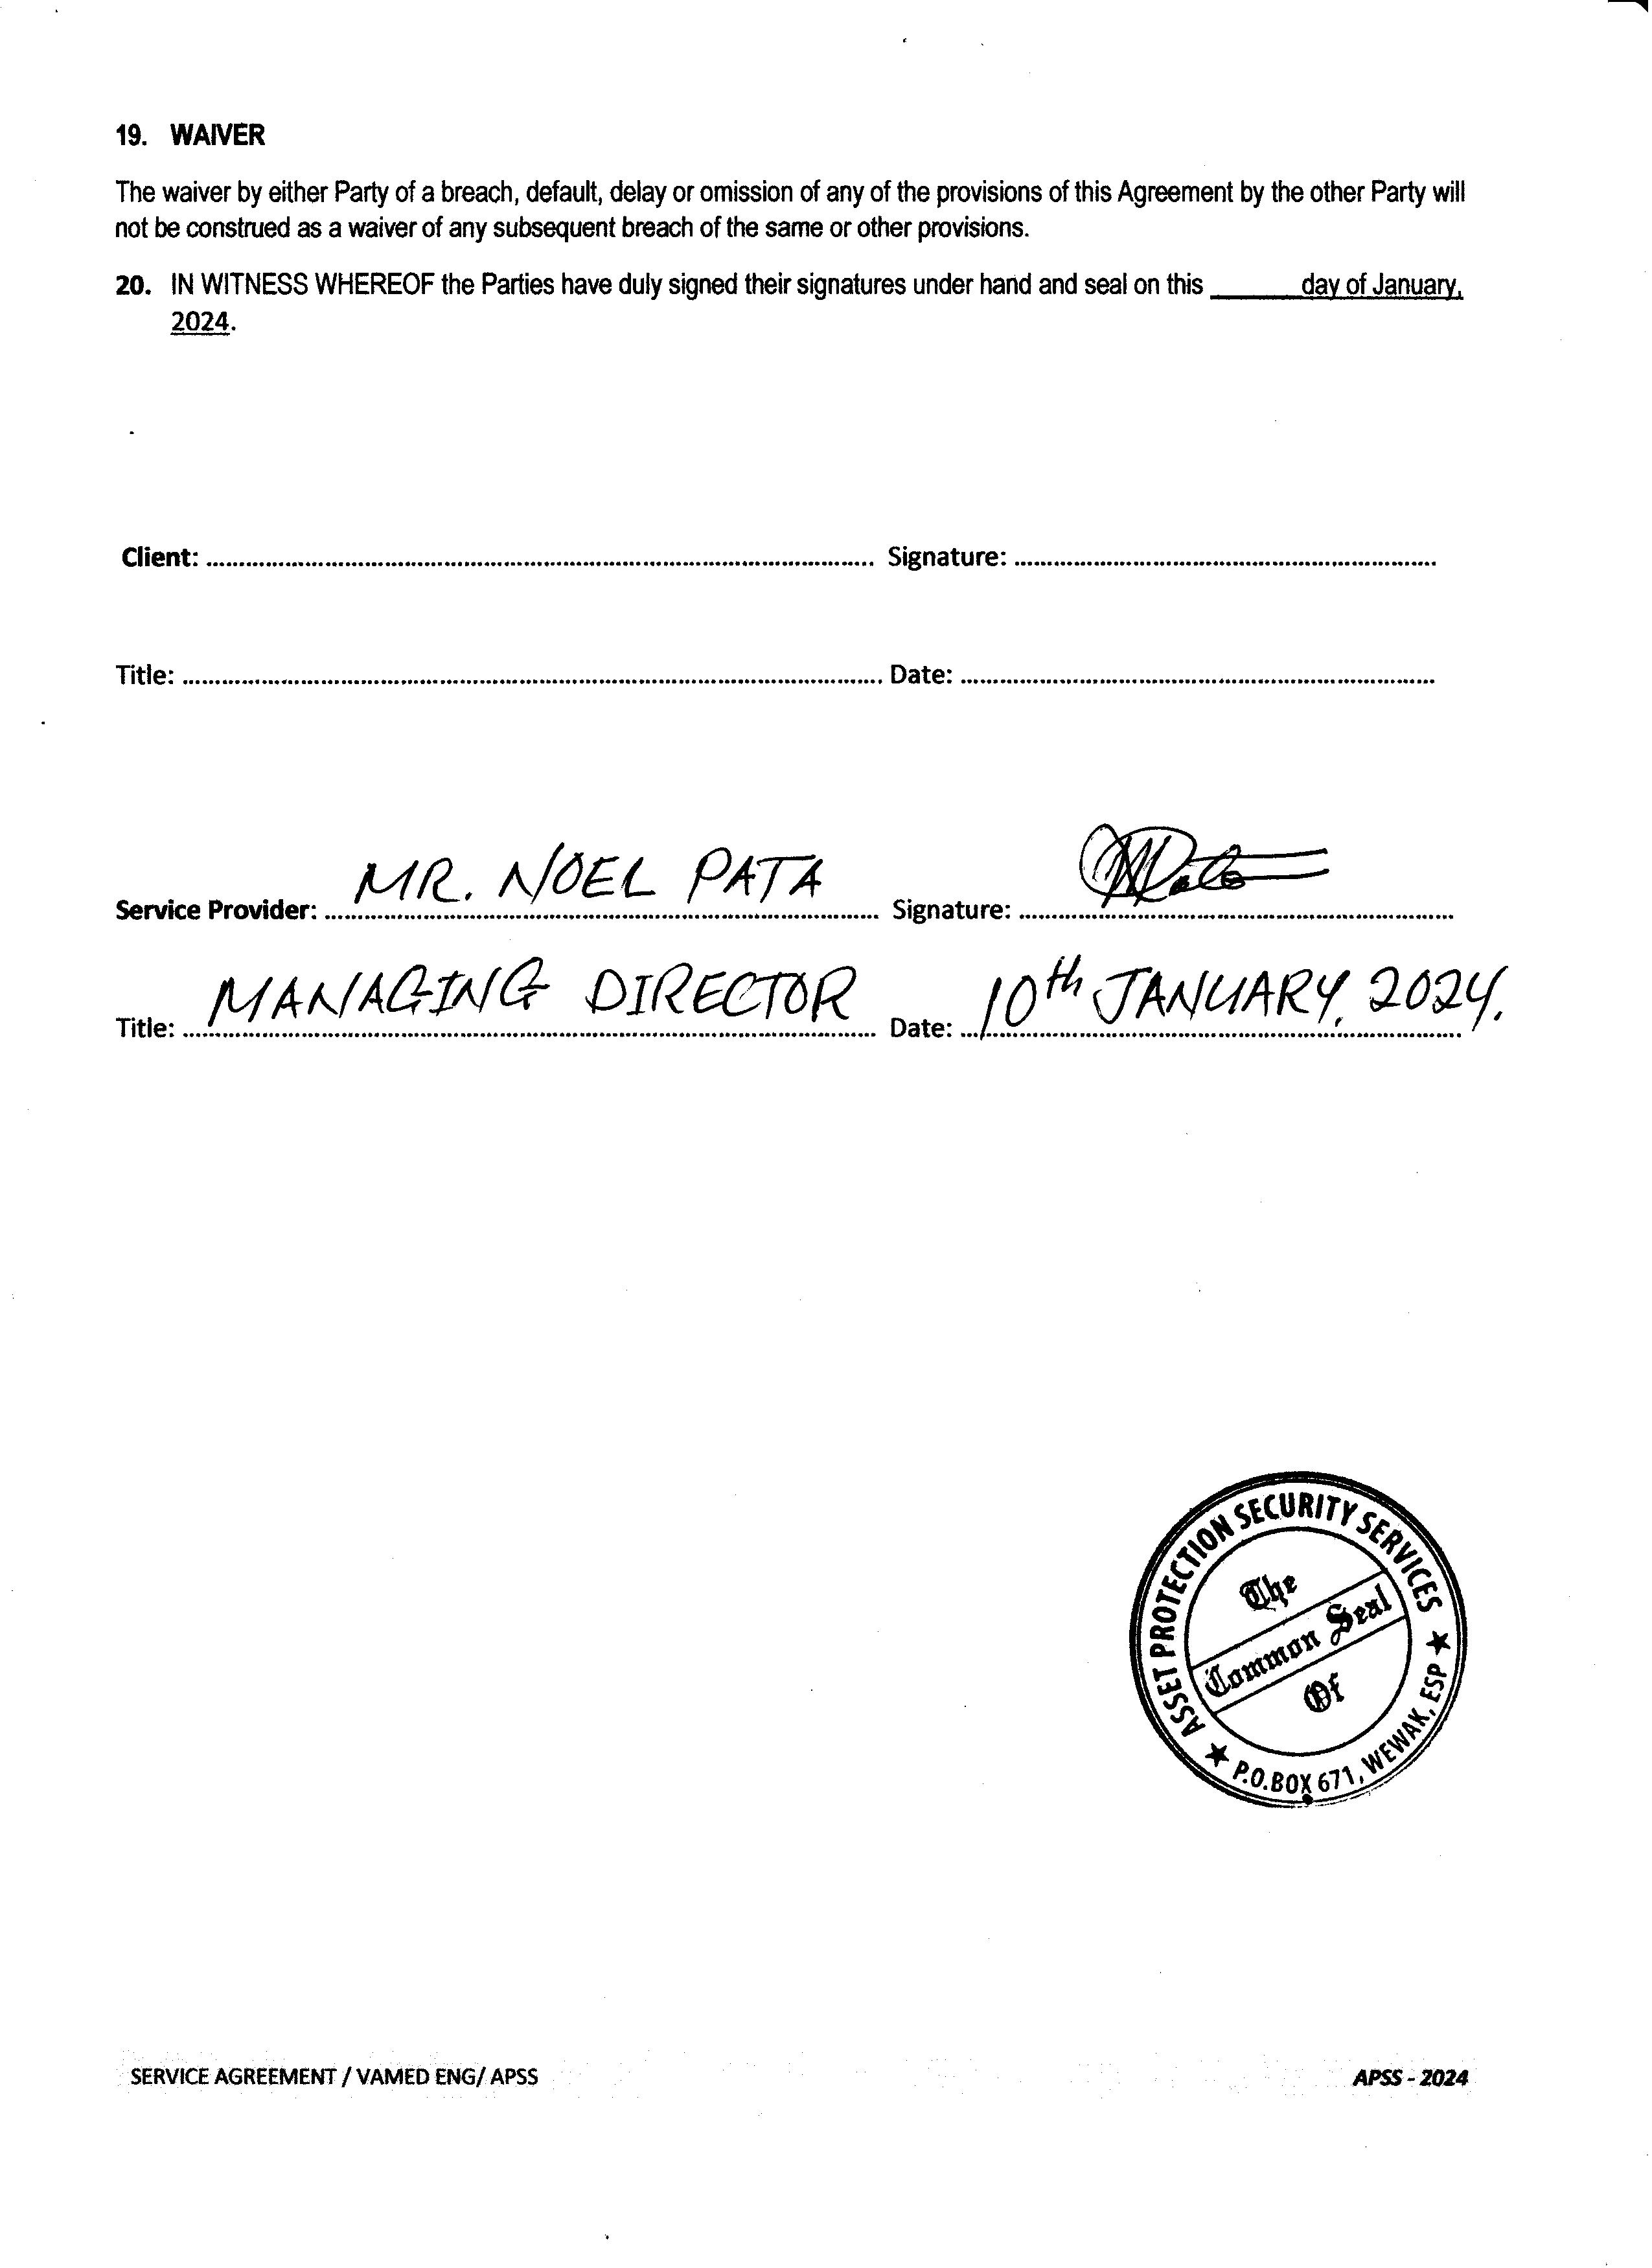 19. WAIVER
The waiver by either Party of a breach, default, delay or omission of any of the provisions of this Agreement by the other Party will
not be construed as a waiver of any subsequent breach of the same or other provisions.
20. IN WITNESS WHEREOF the Parties have duly signed their signatures under hand and seal on this ______ day of January,
2024.
Client: .................................................. Signature: ..................................................
Title: .................................................. Date: ..................................................
Service Provider: MR. NOEL PATA Signature:
Title: MANAGING DIRECTOR Date: 10th JANUARY, 2024.
ASSET PROTECTION SECURITY SERVICES
The
Common Seal
Of
★ P.O.BOX 671, WEWAK, ESP ★
SERVICE AGREEMENT / VAMED ENG/ APSS APSS - 2024